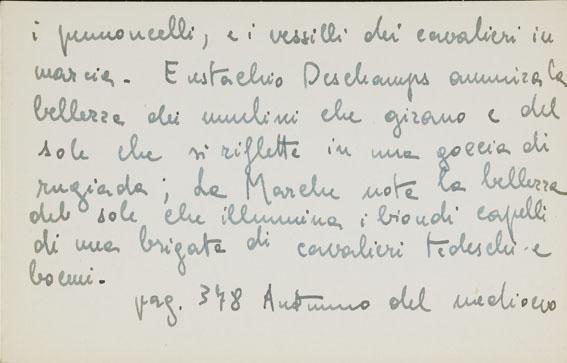 i pennoncelli, e i vessilli dei cavalieri in
marcia. Eustachio Deschamps ammira la
bellezza dei mulini che girano e del
sole che si riflette in una goccia di
rugiada; La Marche nota la bellezza
del sole che illumina i biondi capelli
di una brigata di cavalieri tedeschi e
boemi.
pag. 378 Autunno del medioevo